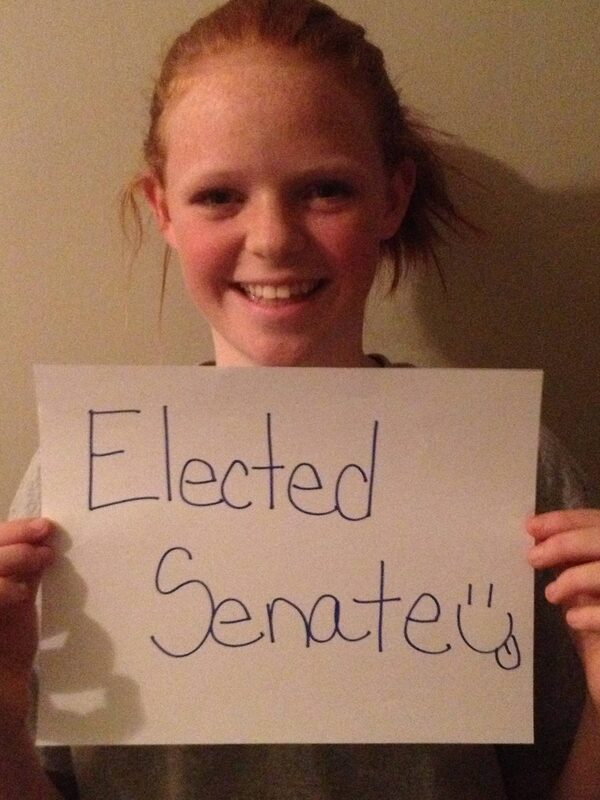 Elected
Senate